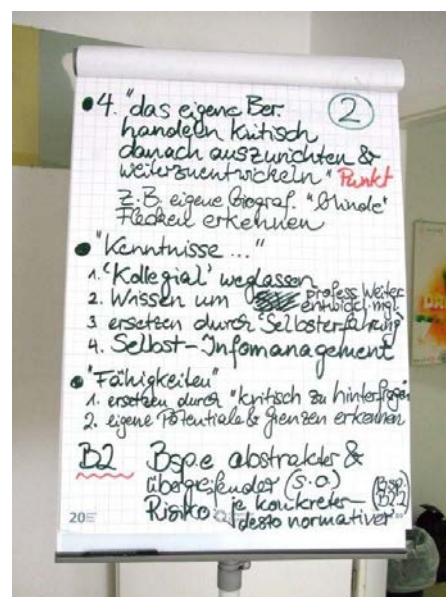 ②
• 4. "das eigene Ber.
handeln kritisch
danach auszurichten &
weiterzuentwickeln" Punkt
z.B. eigene biograf. "blinde"
Flecken erkennen
• "Kenntnisse ..."
1. 'Kollegial' weglassen
2. Wissen um profess. Weiter
entwickl. mgl.
3. ersetzen durch Selbsterfahrung
4. Selbst-Infomanagement
• "Fähigkeiten"
1. ersetzen durch "kritisch zu hinterfragen
2. eigene Potentiale & Grenzen erkennen
B2 Bsp.e abstrakter &
übergreifender (s.o.)
Risiko: je konkreter – (Bsp.
desto normativer B2.2)
20